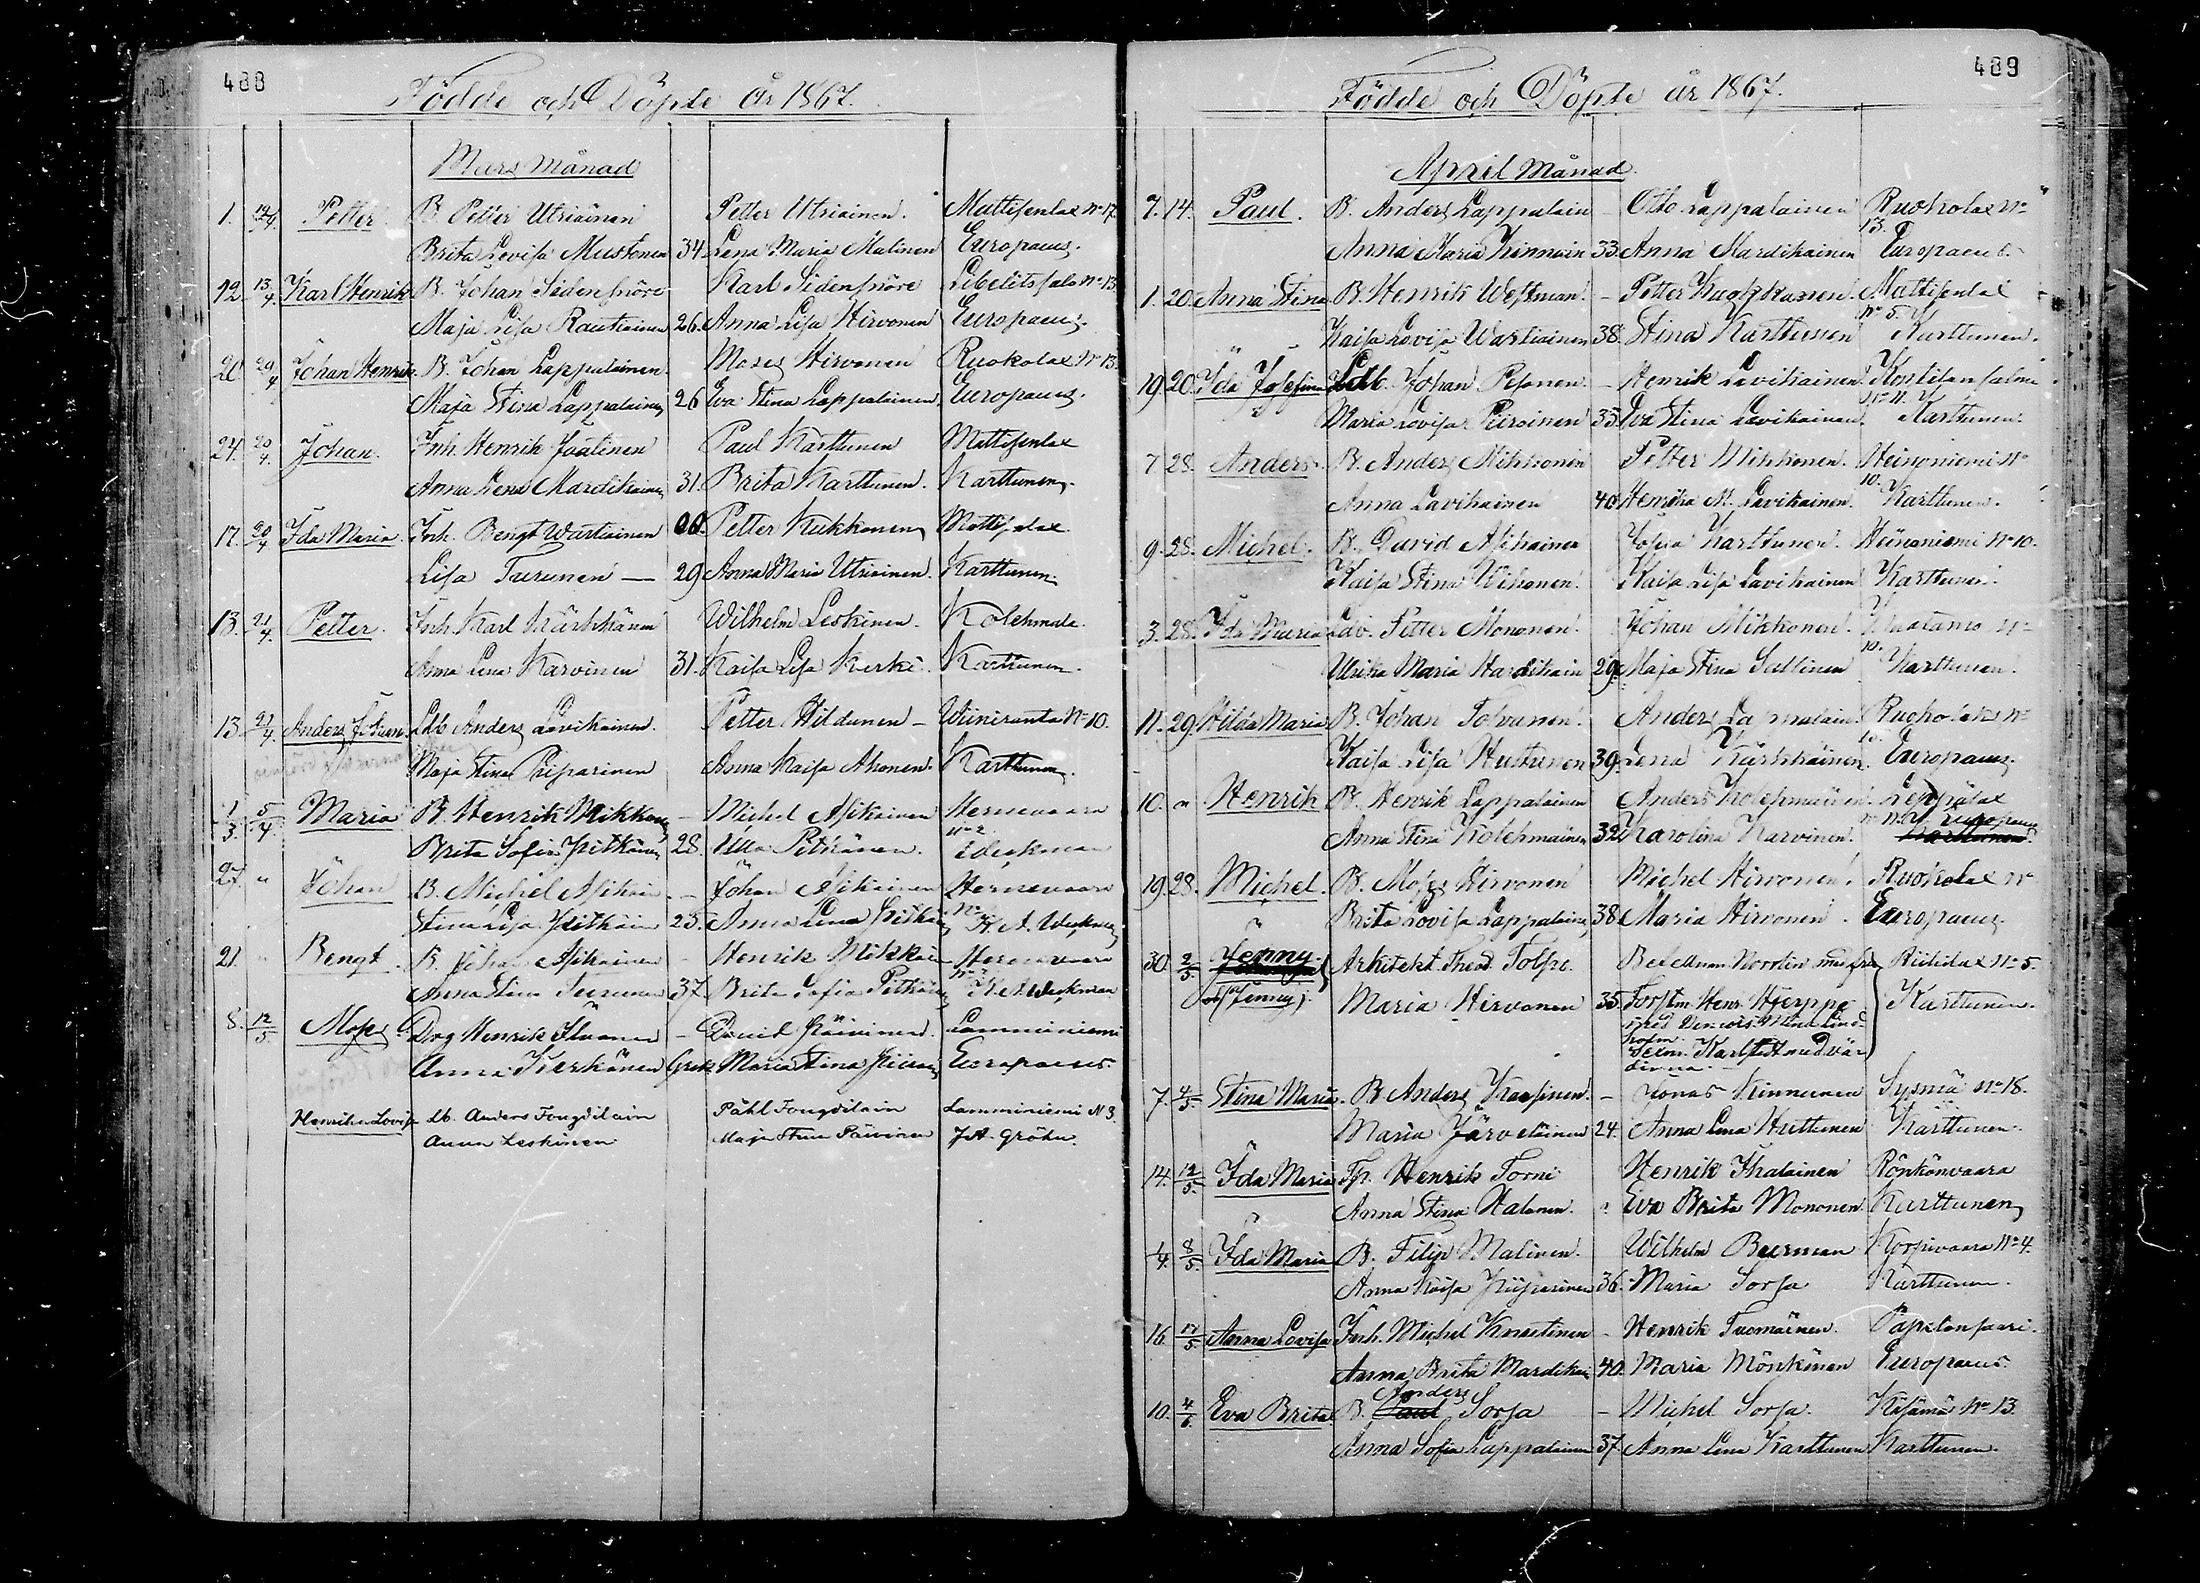 488
Födde och Döpte år 1867.
Mars Månad
1. 14/4 Petter. B. Petter Utriainen Petter Utriainen. Mattisenlax No 17.
Brita Lovisa Mustonen 34. Lena Maria Malinen Europaeus.
12. 13/4 Karl Henrik B. Johan Sidensnöre Karl Sidensnöre Libelitssalo No 13
Maja Lisa Rautiainen 26. Anna Lisa Hirvonen Europaeus.
20. 20/4 Johan Henrik. B. Johan Lappalainen Moses Hirvonen Ruokolax No 13
Maja Stina Lappalainen 26 Eva Stina Lappalainen Europaeus.
24. 20/4. Johan. Inh. Henrik Jaatinen Paul Karttunen Mattisenlax
Anna Lena Mardikainen 31. Brita Karttunen. Karttunen.
17. 20/4 Ida Maria. Inh. Bengt Wartiainen Petter Kukkonen Mattisenlax
Lisa Turunen — 29 Anna Maria Utriainen. Karttunen
13. 21/4. Petter. Inh. Karl Kärkkäinen Wilhelm Leskinen. Kolehmala.
Anna Lena Karvinen 31. Kaisa Lisa Kerki. Karttunen.
13. 21/4. Anders Johan. Ldb Anders Lavikainen. Petter Hildunen – Wiiniranta No 10.
Maja Stina Piiparinen Anna Kaisa Ahonen. Karttunen.
1/3. 5/4. Maria B. Henrik Mikkonen – Michel Asikainen Hernevaara
No 2
Brita Sofia Pitkänen 28. Ulla Pitkänen. Weckman
27. " Johan B. Michel Asikain – Johan Asikainen Hernevaara
Stina Lisa Pitkäin 25. Anna Lena Pitkäin K. A. Weckman
21. " Bengt. B. Johan Asikainen – Henrik Mikkoin Hernevaara
Anna Stina Turunen 37. Brita Sofia Pitkäin K. A. Weckman
8. 12/5 Moses Drg Henrik – David Päivinen. Lamminiemi
Anna Kierkänen Grek. Maria Stina Europaeus.
Henrika Lovisa Lb. Anders Tougdilain Påhl Tougdilain Lamminiemi N 3.
Anna Leskinen Maja Stina Päivinen J. A. Gröhn.
489
Födde och Döpte år 1867.
April Månad.
7. 14. Paul. B. Anders Lappalain – Otto Lappalainen Ruokolax No
13.
Anna Maria Kinnuin 33. Anna Mardikainen Europaeus.
1. 20. Anna Stina B. Henrik Westman. – Petter Mattisenlax
No 5.
Kaisa Lovisa Wartiainen 38. Stina Karttunen Karttunen.
19. 20. Ida Josefina Ldb. Johan Pesonen. – Henrik Lavikainen Kontisensalmi
No 11.
Maria Lovisa Piiroinen 35. Eva Stina Lavikainen. Karttunen.
7. 28. Anders. B. Anders Mikkonen Petter Mikkonen. Heinoniemi No
10.
Anna Lavikainen 40. Henrika M. Lavikainen. Karttunen.
9. 28. Michel. B. David Asikainen Josua Karttunen. Heinoniemi No 10.
Kaisa Stina Wihonen. Kaisa Lisa Lavikainen Karttunen.
3. 28. Ida Maria Ldb. Petter Mononen. Johan Mikkonen. Waalamo No
10.
Ulrika Maria Hardikain 29. Maja Stina Sallinen Karttunen.
11. 29 Hilda Maria B. Johan Tolvanen. Anders Lappalain. Ruokolax No
Kaisa Lisa Huttunen 39. Lena Kärkkäinen. Europaeus.
10. " Henrik B. Henrik Lappalainen Anders Kolehmainen. Leppälax
No 11. Europaeus
Anna Stina Kolehmainen 32. Karolina Karvinen. Karttunen.
19. 28. Michel. B. Moses Hirvonen Michel Hirvonen. Ruokolax No
Brita Lovisa Lappalain 38. Maria Hirvonen. Europaeus.
30. 2/5 Jenny. Arkitekt. Theod. Tolpo. Befellnm Norrlin med fru Riihilax No 5.
(Jenny). Maria Hirvonen 35. Forstm. Henr. Hjerppe Karttunen.
med Demois. Mina Lindholm.
Karlstedt med värdinna.
7. 4/5. Stina Maria. B. Anders Kaasinen. – Jonas Kinnunen Sysmä No 18.
Maria Järveläinen 24. Anna Lena Huttunen Karttunen.
14. 12/5. Ida Maria Tp. Henrik Torni Henrik Ihalainen Rönkönvaara
Anna Stina Halonen. Eva Brita Mononen. Karttunen
4. 8/5. Ida Maria B. Filip Malinen. Wilhelm Buurman Korpivaara No 4.
Anna Kaisa Piiparinen 36. Maria Sorsa Karttunen.
16 17/5. Anna Lovisa Inh. Michel Knuutinen – Henrik Tuomainen. Papelonsaari.
Anna Brita Mardikain 40. Maria Mönkönen Europaeus.
Anders
10. 4/6 Eva Brita B. Paul Sorsa – Michel Sorsa. Kisämä No 13.
Anna Sofia Lappalainen 37. Anna Lena Karttunen Karttunen.